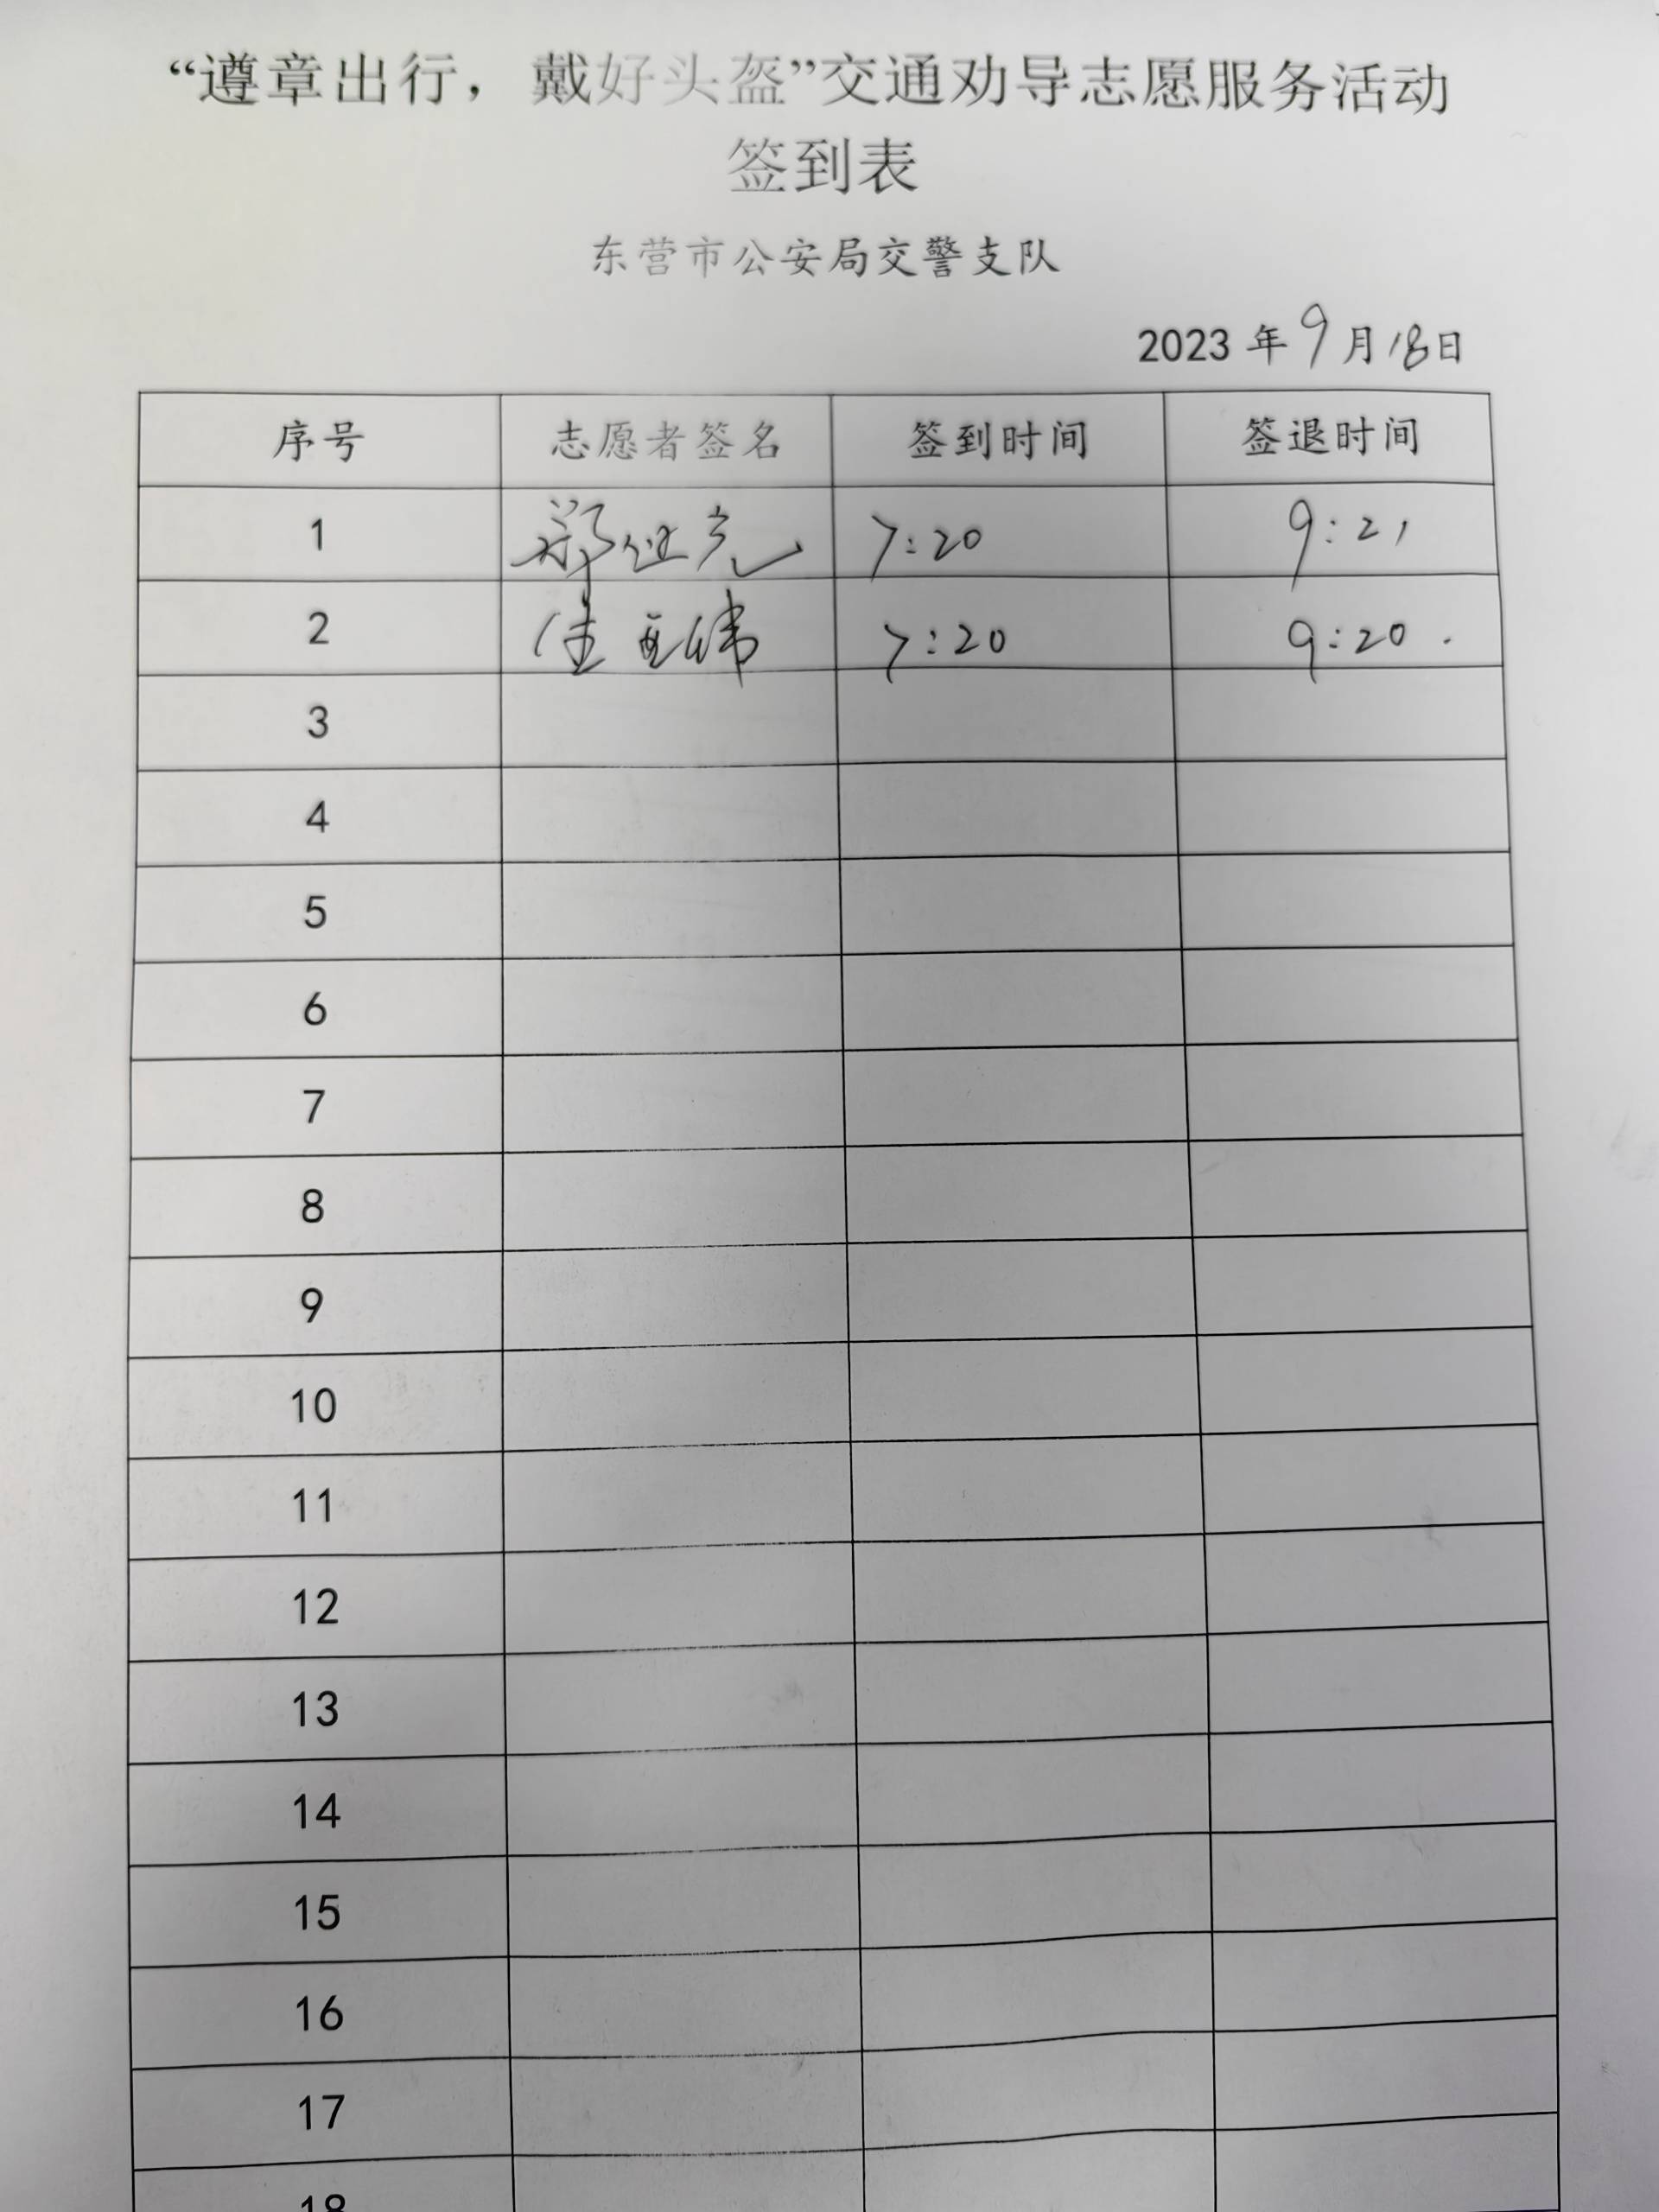 “遵章出行，戴好头盔”交通劝导志愿服务活动
签到表
东营市公安局交警支队
2023 年 9 月 18 日
序号 志愿者签名 签到时间 签退时间
1 7:20 9:21
2 7:20 9:20
3
4
5
6
7
8
9
10
11
12
13
14
15
16
17
18